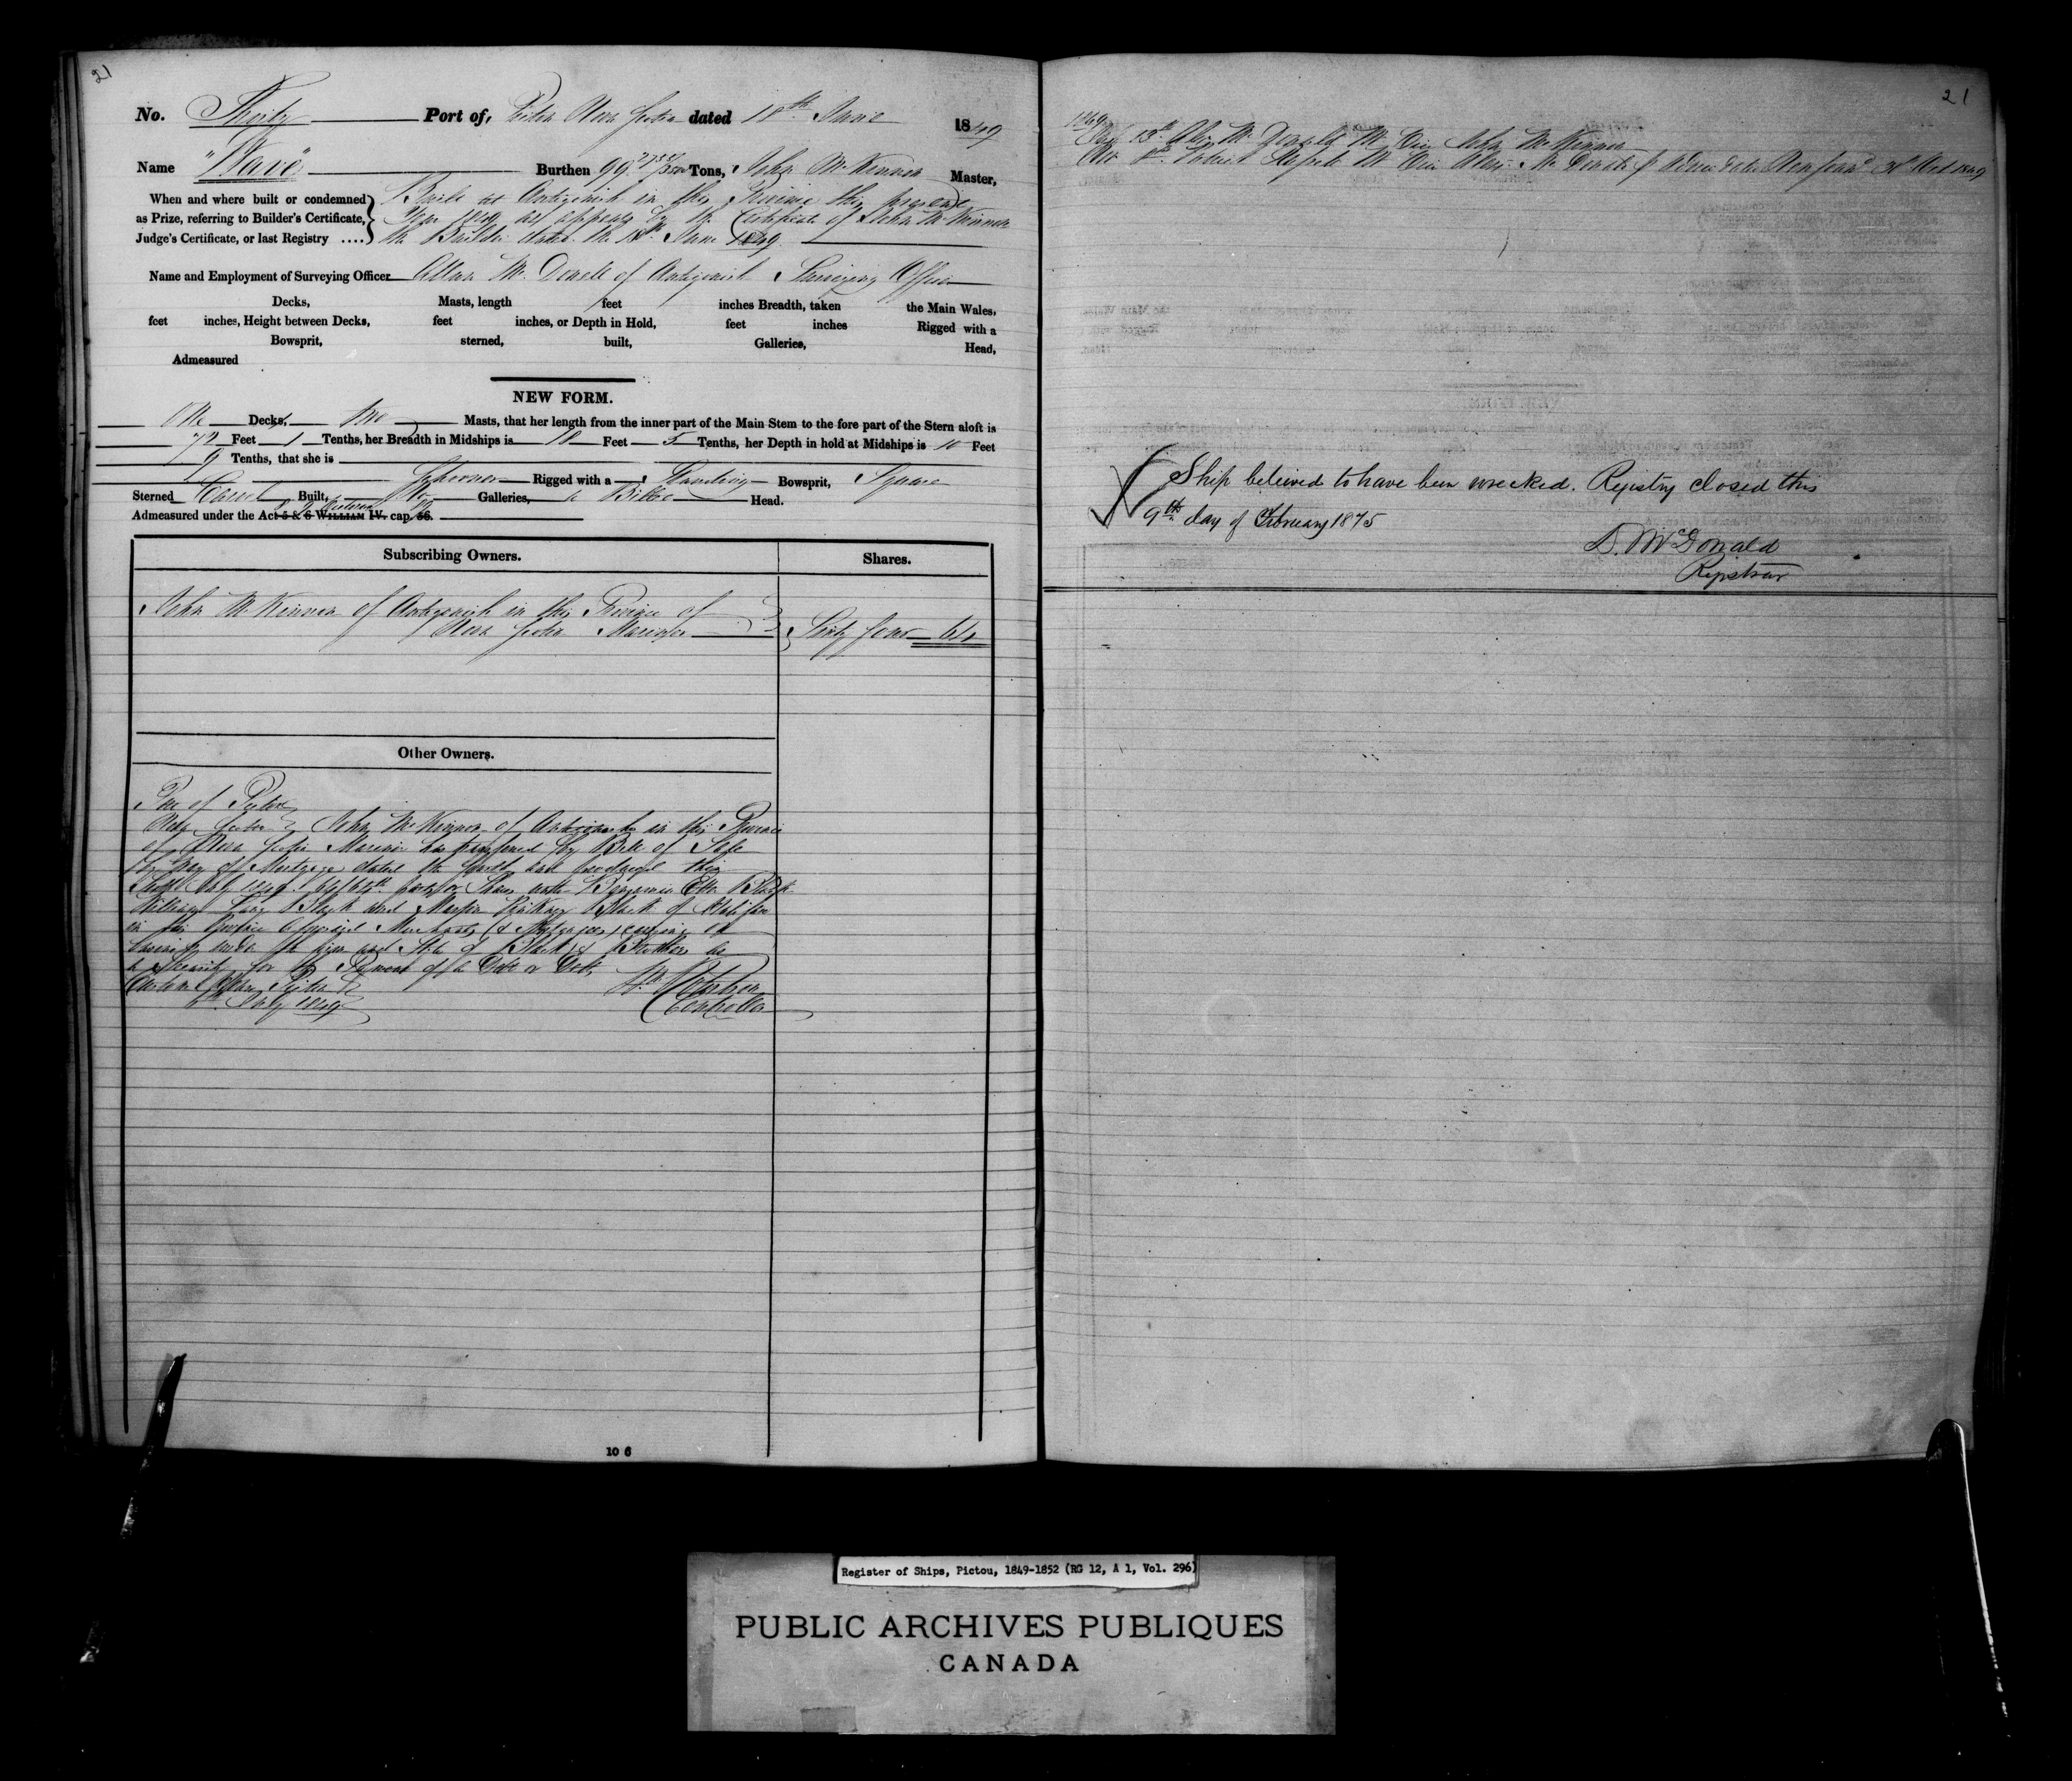 21
No. Thirty Port of, Pictou Nova Scotia dated 18th June 1849
Name "Wave" Burthen 99 Tons, John McKinnon Master,
When and where built or condemned
as Prize, referring to Builder's Certificate,
Judge's Certificate, or last Registry ....
Built at Antigonish in this Province this present
Year 1849 as appears by the Certificate of John McKinnon
the Builder dated the 13th June 1849
Name and Employment of Surveying Officer Allan McDonell of Antigonish Surveying Officer
Decks, Masts, length feet inches Breadth, taken the Main Wales,
feet inches, Height between Decks, feet inches, or Depth in Hold, feet inches Rigged with a
Bowsprit, sterned, built, Galleries, Head,
Admeasured
NEW FORM.
One Decks, Two Masts, that her length from the inner part of the Main Stem to the fore part of the Stern aloft is
72 Feet 1 Tenths, her Breadth in Midships is 18 Feet 5 Tenths, her Depth in hold at Midships is 10 Feet
9 Tenths, that she is
Schooner Rigged with a Standing Bowsprit, Square
Sterned Carvel Built, No Galleries, a Billet Head.
Admeasured under the Act 5 & 6 WILLIAM IV. cap. 56.
Subscribing Owners. Shares.
John McKinnon of Antigonish in this Province of
Nova Scotia Mariner
Sixty four 64
Other Owners.
Port of Pictou
Nova Scotia John McKinnon of Antigonish in this Province
of Nova Scotia Mariner has transferred by Bill of Sale
by way of Mortgage dated the fourth and produced this
July 1849 64/64th parts or Shares unto Benjamin Etter Black
William Black and Martin Black of Halifax
in the Province aforesaid Merchants (& Mortgagees) carrying on
business under the firm and Style of Black & Brothers as
a Security for the Payment of a Debt or Debts
Custom House Pictou
July 1849
Controller
10 6
21
1849
13th Alex McDonald Mr Vice John McKinnon
Mr Vice Alexr McDonald 1849
Ship believed to have been wrecked. Registry closed this
9th day of February 1875
D. McDonald
Registrar
Register of Ships, Pictou, 1849-1852 (RG 12, A 1, Vol. 296)
PUBLIC ARCHIVES PUBLIQUES
CANADA